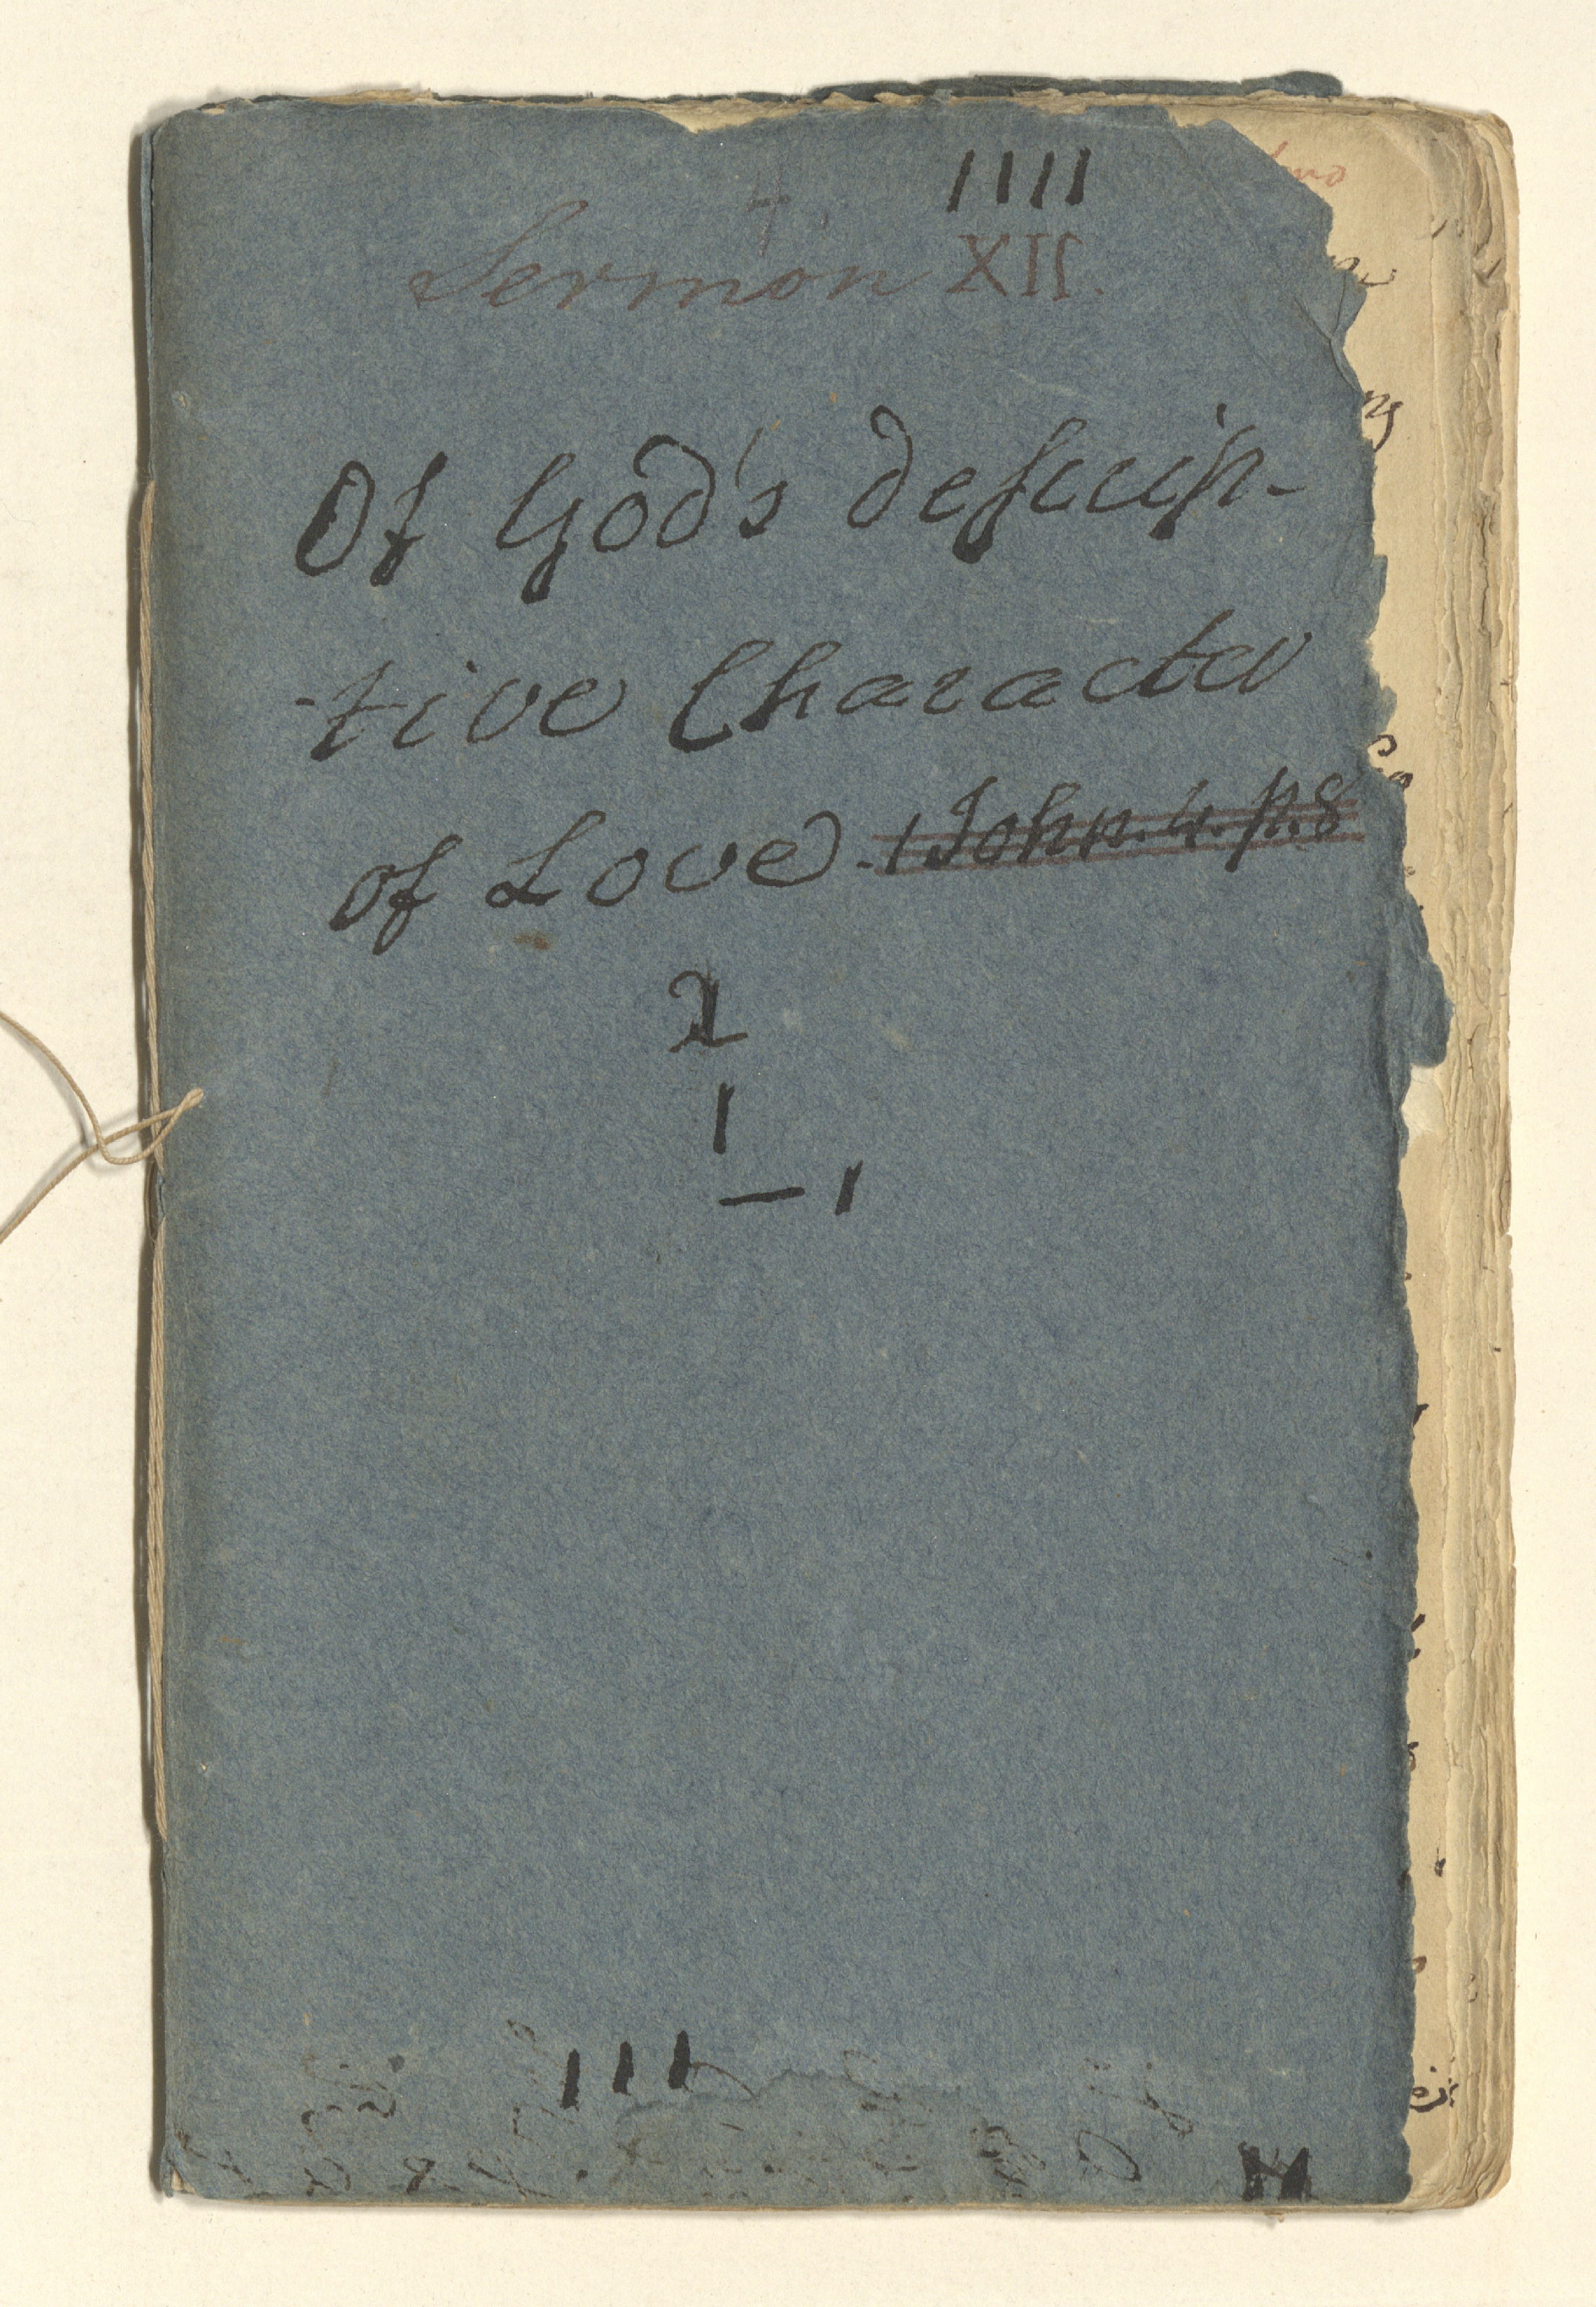 IIII
4.
Sermon XII.
Of God's descrip-
-tive Character
of Love. 1 John. 4. p. 8
2
1
— 1
III